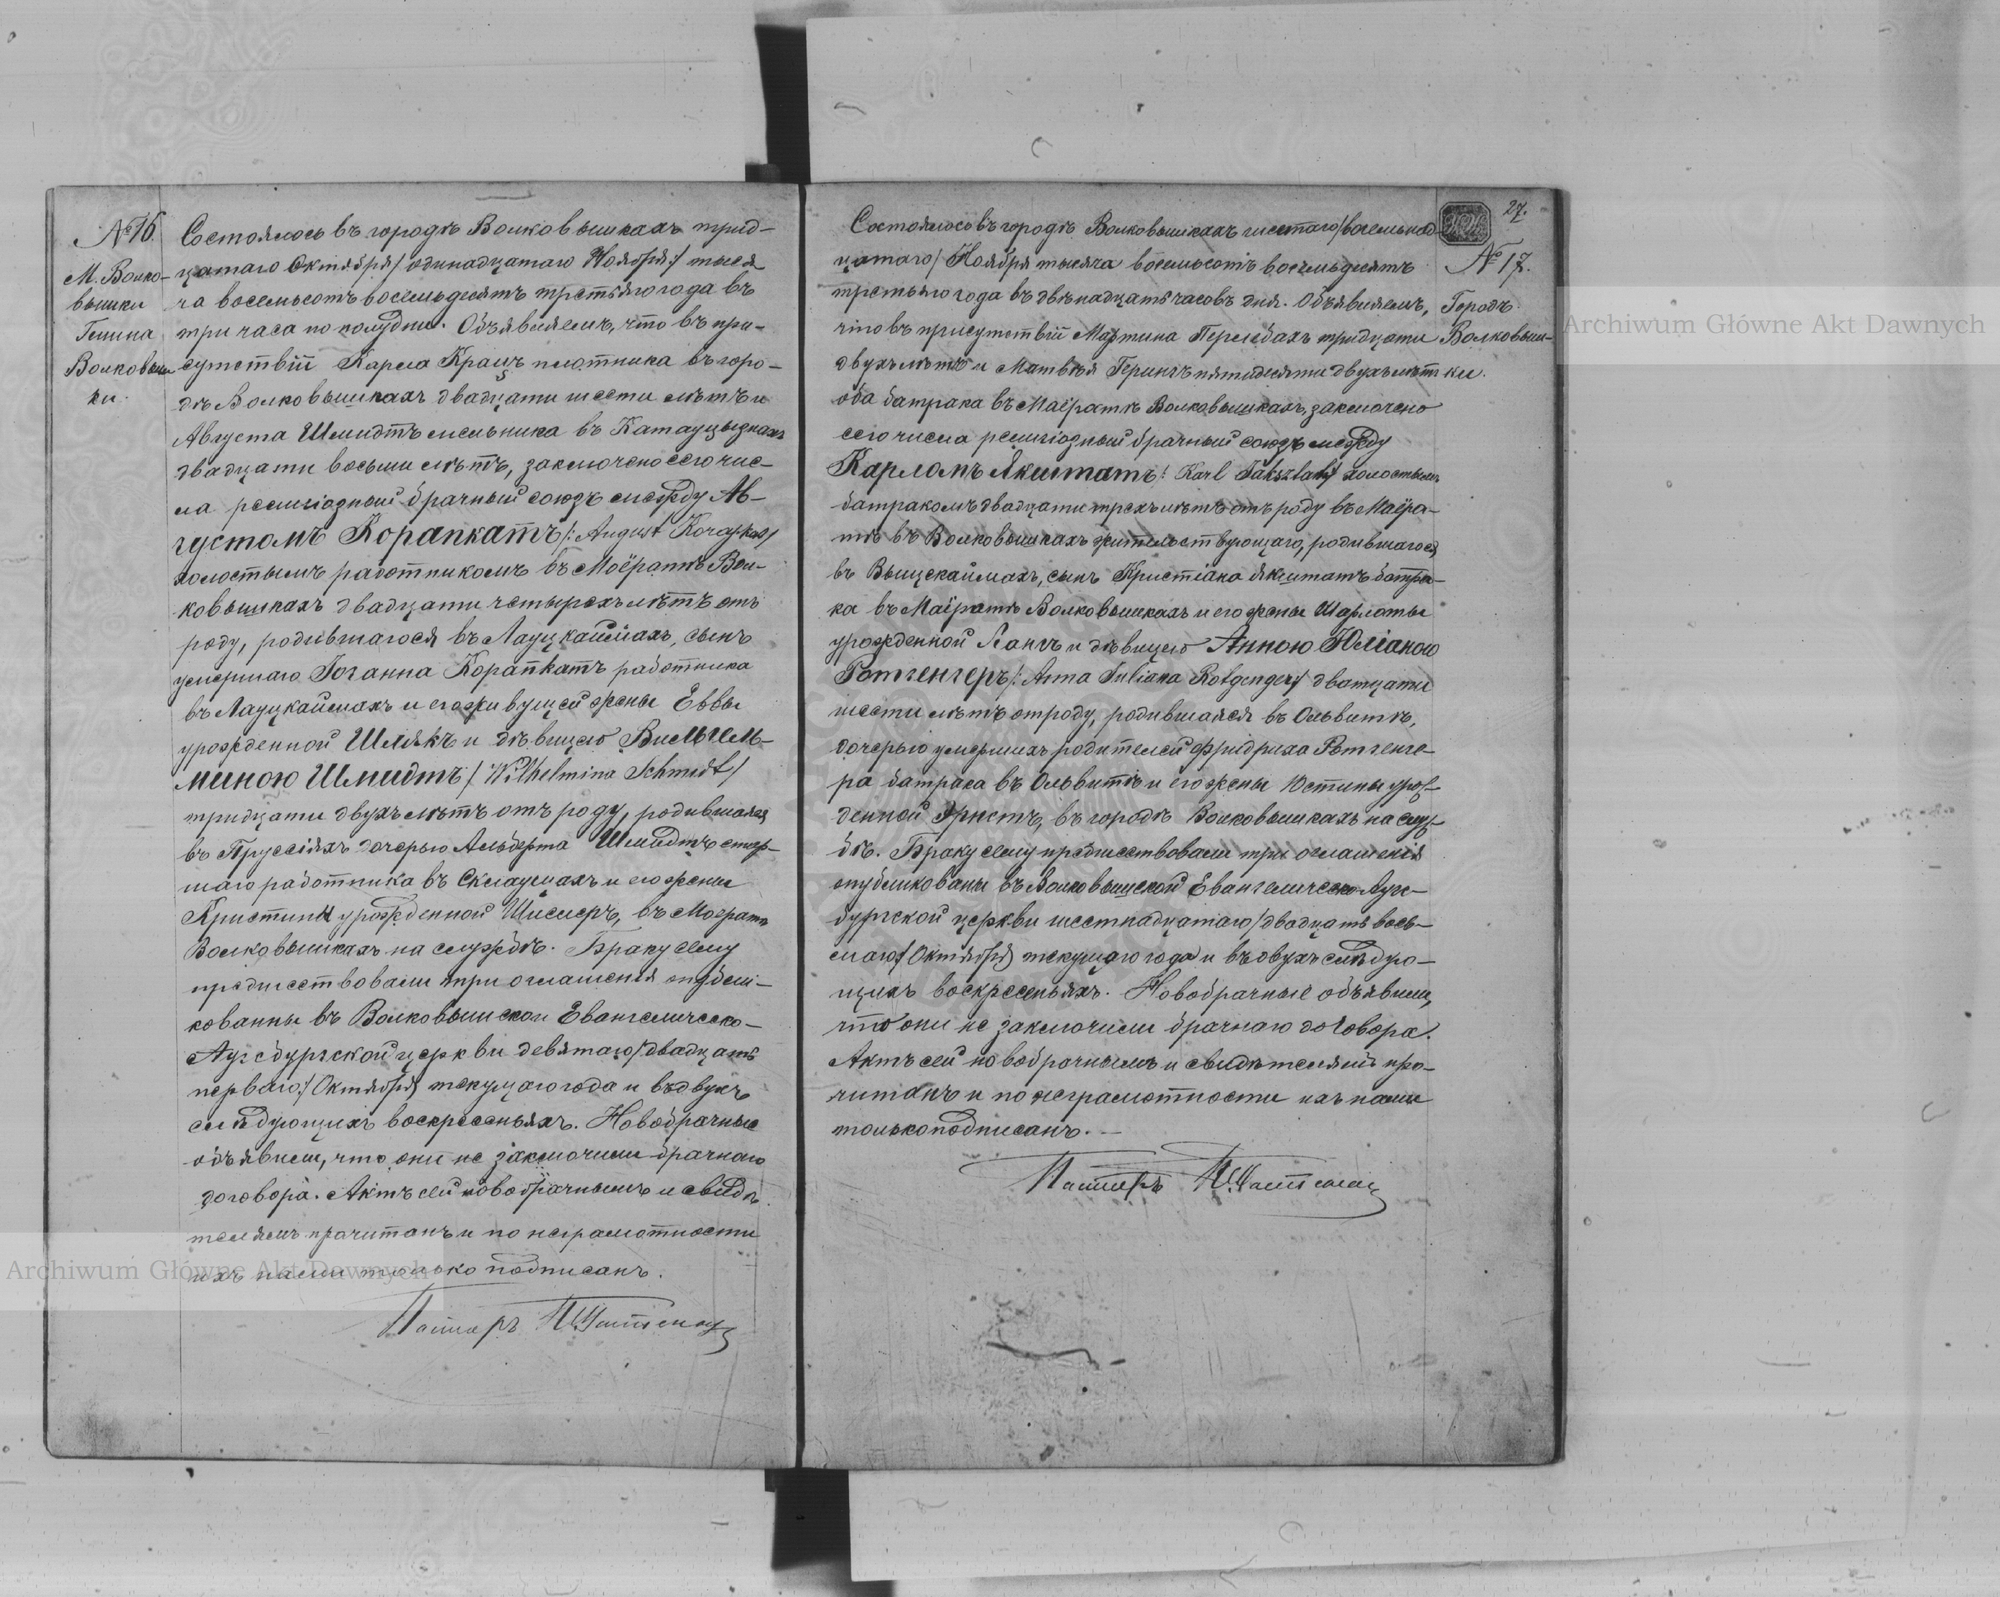 № 16.
М. Волко-
вышки
Гмина
Волковыш
ки.
Состоялось въ городѣ Волковышкахъ трид-
цатаго Октября/одинадцатаго Ноября/ тыся
ча восемьсотъ восемьдесятъ третьяго года въ
три часа по полудни. Объявляемъ, что въ при-
сутствіи Карла Кранцъ плотника въ горо-
дѣ Волковышкахъ двадцати шести лѣтъ и
Августа Шмидтъ мельника въ
двадцати восьми лѣтъ, заключено сего чис-
ла религіозный брачный союзъ между Ав-
густомъ Корапкатъ/: August Korapkat/
холостымъ работникомъ въ Маіоратѣ Вол-
ковышкахъ двадцати четырехъ лѣтъ отъ
роду, родившагося въ Лауцкаймахъ, сынъ
умершаго Іоганна Корапкатъ работника
въ Лауцкаймахъ и его живущей жены Еввы
урожденной Шлякъ и дѣвицею Вильгель-
миною Шмидтъ / Wilhelmina Schmidt/
тридцати двухъ лѣтъ отъ роду, родившаяся
въ Пруссіяхъ дочерью Альберта Шмидтъ
шаго работника въ и его жены
Кристины урожденной въ Маіоратѣ
Волковышкахъ на службѣ. Браку сему
предшествовали три оглашенія опубли-
кованны въ Волковышской Евангелическо-
Аугсбургской церкви девятаго/двадцать
перваго/ Октября текущаго года и въ двухъ
слѣдующихъ воскресеньяхъ. Новобрачные
объявили, что они не заключили брачнаго
договора. Актъ сей новобрачнымъ и свидѣ
телямъ прочитанъ и по неграмотности
ихъ нами только подписанъ.
Пасторъ
27.
№ 17.
Городъ
Волковыш-
ки.
Состоялось въ городѣ Волковышкахъ шестаго/восемьнад
цатаго/ Ноября тысяча восемьсотъ восемьдесятъ
третьяго года въ двѣнадцать часовъ дня. Объявляемъ,
что въ присутствіи Мартина тридцати
двухъ лѣтъ и Матвѣя Герингъ пятидесяти двухъ лѣтъ
оба батрака въ Маіоратѣ Волковышкахъ, заключено
сего числа религіозный брачный союзъ между
Карломъ Якштатъ/: Karl Jaksztat/ холостымъ
батракомъ двадцати трехъ лѣтъ отъ роду въ Маіора-
тѣ въ Волковышкахъ жительствующаго, родившагося
въ сынъ Кристіана Якштатъ батра-
ка въ Маіоратѣ Волковышкахъ и его жены Шарлоты
урожденной Лангъ и дѣвицею Анною Юліаною
Ротгенгеръ/: Anna Juliana Rotgenger/ двадцати
шести лѣтъ отроду, родившаяся въ Ольвитѣ,
дочерью умершихъ родителей Фридриха Ротгенге-
ра батрака въ Ольвитѣ и его жены Юстины урож-
денной Эрнстъ, въ городѣ Волковышкахъ на служ-
бѣ. Браку сему предшествовали три оглашенія
опубликованы въ Волковышской Евангелическо Аугс-
бургской церкви шестнадцатаго/двадцать вось-
маго/ Октября текущаго года и въ двухъ слѣдую-
щихъ воскресеньяхъ. Новобрачные объявили,
что они не заключили брачнаго договора.
Актъ сей новобрачнымъ и свидѣтелямъ про-
читанъ и по неграмотности ихъ нами
только подписанъ. —
Пасторъ
Archiwum Główne Akt Dawnych
Archiwum Główne Akt Dawnych